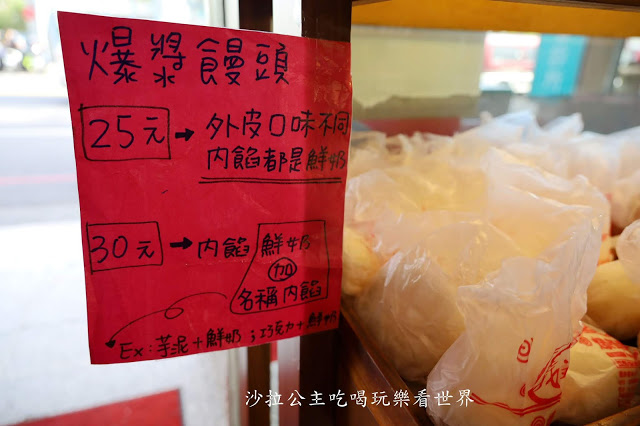 爆漿饅頭
25元→外皮口味不同
内餡都是鮮奶
30元→内餡鮮奶
加
名稱内餡
Ex:芋泥+鮮奶;巧克力+鮮奶
沙拉公主吃喝玩樂看世界